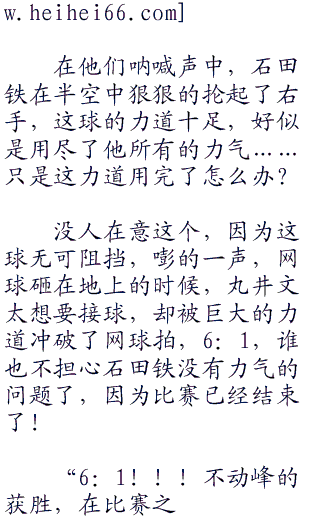 w.heihei66.com]
在他们呐喊声中，石田
铁在半空中狠狠的抡起了右
手，这球的力道十足，好似
是用尽了他所有的力气……
只是这力道用完了怎么办？
没人在意这个，因为这
球无可阻挡，嘭的一声，网
球砸在地上的时候，丸井文
太想要接球，却被巨大的力
道冲破了网球拍，6：1，谁
也不担心石田铁没有力气的
问题了，因为比赛已经结束
了！
“6：1！！！不动峰的
获胜，在比赛之